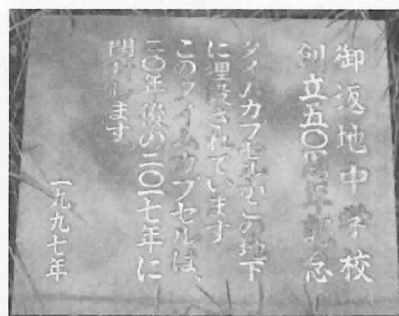 御返地中学校
創立五〇周年記念
タイムカプセルがこの地下
に埋設されています
このタイムカプセルは、
二〇年後の二〇一七年に
開封します。
一九九七年